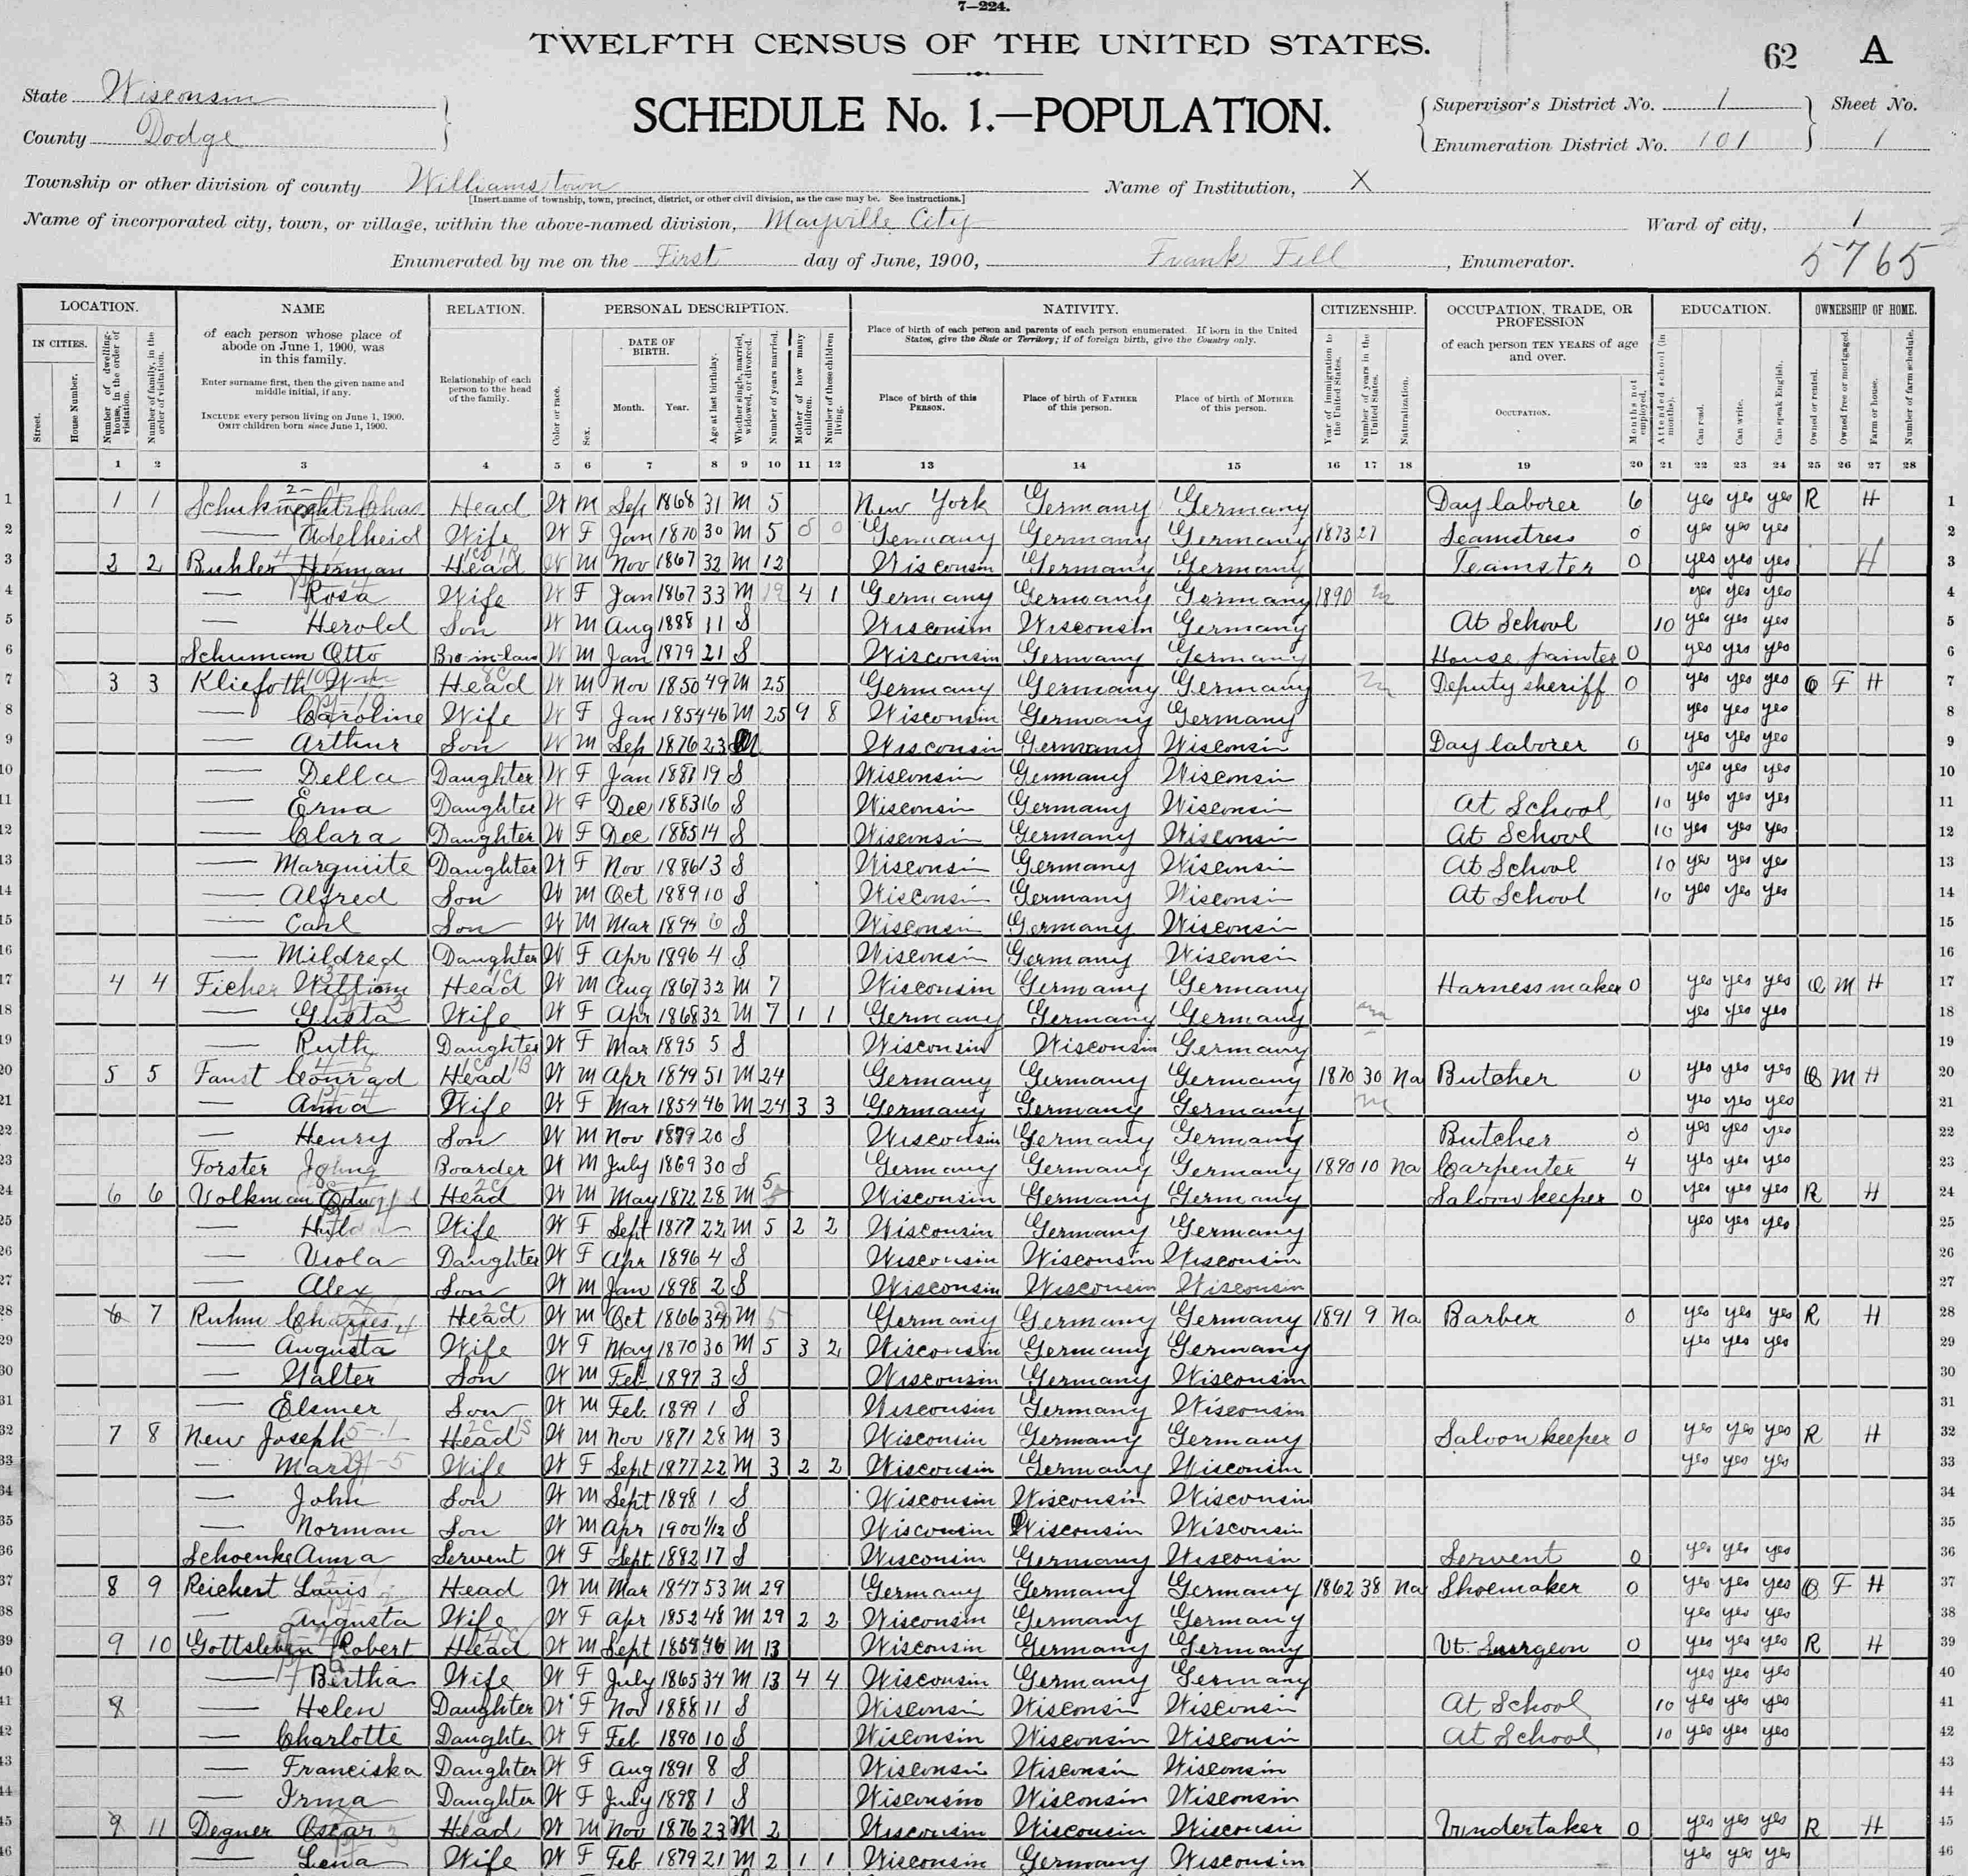 7—224.
TWELFTH CENSUS OF THE UNITED STATES.
62 A
State Wisconsin
County Dodge
SCHEDULE No. 1.—POPULATION.
Supervisor's District No. 1 Sheet No.
Enumeration District No. 101 1
Township or other division of county Williamstown Name of Institution, X
[Insert name of township, town, precinct, district, or other civil division, as the case may be. See instructions.]
Name of incorporated city, town, or village, within the above-named division, Mayville City Ward of city, 1
Enumerated by me on the First day of June, 1900, Frank Fell, Enumerator.
5765
LOCATION. NAME RELATION. PERSONAL DESCRIPTION. NATIVITY. CITIZENSHIP. OCCUPATION, TRADE, OR PROFESSION EDUCATION. OWNERSHIP OF HOME.
IN CITIES. Street. House Number. Number of dwelling-house, in the order of visitation. Number of family, in the order of visitation.
of each person whose place of abode on June 1, 1900, was in this family.
Enter surname first, then the given name and middle initial, if any.
INCLUDE every person living on June 1, 1900. OMIT children born since June 1, 1900.
Relationship of each person to the head of the family.
Color or race. Sex. DATE OF BIRTH. Month. Year. Age at last birthday. Whether single, married, widowed, or divorced. Number of years married. Mother of how many children. Number of these children living.
Place of birth of each person and parents of each person enumerated. If born in the United States, give the State or Territory; if of foreign birth, give the Country only.
Place of birth of this PERSON. Place of birth of FATHER of this person. Place of birth of MOTHER of this person.
Year of immigration to the United States. Number of years in the United States. Naturalization.
of each person TEN YEARS of age and over.
OCCUPATION. Months not employed.
Attended school (in months). Can read. Can write. Can speak English.
Owned or rented. Owned free or mortgaged. Farm or house. Number of farm schedule.
1 2 3 4 5 6 7 8 9 10 11 12 13 14 15 16 17 18 19 20 21 22 23 24 25 26 27 28
1 1 1 Schuknecht Chas Head W M Sep 1868 31 M 5 New York Germany Germany Day laborer 6 yes yes yes R H 1
2 — Adelheid Wife W F Jan 1870 30 M 5 0 0 Germany Germany Germany 1873 27 Seamstress 0 yes yes yes 2
3 2 2 Buhler Herman Head W M Nov 1867 32 M 12 Wisconsin Germany Germany Teamster 0 yes yes yes H 3
4 — Rosa Wife W F Jan 1867 33 M 12 4 1 Germany Germany Germany 1890 yes yes yes 4
5 — Herold Son W M Aug 1888 11 S Wisconsin Wisconsin Germany At School 10 yes yes yes 5
6 Schuman Otto Bro-in-law W M Jan 1879 21 S Wisconsin Germany Germany House painter 0 yes yes yes 6
7 3 3 Kliefoth Wm Head W M Nov 1850 49 M 25 Germany Germany Germany Deputy sheriff 0 yes yes yes O F H 7
8 — Caroline Wife W F Jan 1854 46 M 25 9 8 Wisconsin Germany Germany yes yes yes 8
9 — Arthur Son W M Sep 1876 23 Wisconsin Germany Wisconsin Day laborer 0 yes yes yes 9
10 — Della Daughter W F Jan 1881 19 S Wisconsin Germany Wisconsin yes yes yes 10
11 — Erna Daughter W F Dec 1883 16 S Wisconsin Germany Wisconsin At School 10 yes yes yes 11
12 — Clara Daughter W F Dec 1885 14 S Wisconsin Germany Wisconsin At School 10 yes yes yes 12
13 — Marguiite Daughter W F Nov 1886 13 S Wisconsin Germany Wisconsin At School 10 yes yes yes 13
14 — Alfred Son W M Oct 1889 10 S Wisconsin Germany Wisconsin At School 10 yes yes yes 14
15 — Carl Son W M Mar 1894 6 S Wisconsin Germany Wisconsin 15
16 — Mildred Daughter W F Apr 1896 4 S Wisconsin Germany Wisconsin 16
17 4 4 Ficher William Head W M Aug 1867 32 M 7 Wisconsin Germany Germany Harness maker 0 yes yes yes O M H 17
18 — Gusta Wife W F Apr 1868 32 M 7 1 1 Germany Germany Germany yes yes yes 18
19 — Ruth Daughter W F Mar 1895 5 S Wisconsin Wisconsin Germany 19
20 5 5 Faust Conrad Head W M Apr 1849 51 M 24 Germany Germany Germany 1870 30 Na Butcher 0 yes yes yes O M H 20
21 — Anna Wife W F Mar 1854 46 M 24 3 3 Germany Germany Germany yes yes yes 21
22 — Henry Son W M Nov 1879 20 S Wisconsin Germany Germany Butcher 0 yes yes yes 22
23 Forster John Boarder W M July 1869 30 S Germany Germany Germany 1890 10 Na Carpenter 4 yes yes yes 23
24 6 6 Volkman Head W M May 1872 28 M 5 Wisconsin Germany Germany Saloon keeper 0 yes yes yes R H 24
25 — Hulda Wife W F Sept 1877 22 M 5 2 2 Wisconsin Germany Germany yes yes yes 25
26 — Viola Daughter W F Apr 1896 4 S Wisconsin Wisconsin Wisconsin 26
27 — Alex Son W M Jan 1898 2 S Wisconsin Wisconsin Wisconsin 27
28 6 7 Ruhm Charles Head W M Oct 1866 M 5 Germany Germany Germany 1891 9 Na Barber 0 yes yes yes R H 28
29 — Augusta Wife W F May 1870 30 M 5 3 2 Wisconsin Germany Germany yes yes yes 29
30 — Walter Son W M Feb 1897 3 S Wisconsin Germany Wisconsin 30
31 — Elsmer Son W M Feb 1899 1 S Wisconsin Germany Wisconsin 31
32 7 8 New Joseph Head W M Nov 1871 28 M 3 Wisconsin Germany Germany Saloon keeper 0 yes yes yes R H 32
33 — Mary Wife W F Sept 1877 22 M 3 2 2 Wisconsin Germany Wisconsin yes yes yes 33
34 — John Son W M Sept 1898 1 S Wisconsin Wisconsin Wisconsin 34
35 — Norman Son W M Apr 1900 1/12 S Wisconsin Wisconsin Wisconsin 35
36 Schoenke Anna Servent W F Sept 1882 17 S Wisconsin Germany Wisconsin Servent 0 yes yes yes 36
37 8 9 Reichert Louis Head W M Mar 1847 53 M 29 Germany Germany Germany 1862 38 Na Shoemaker 0 yes yes yes O F H 37
38 — Augusta Wife W F Apr 1852 48 M 29 2 2 Wisconsin Germany Germany yes yes yes 38
39 9 10 Gottsleben Robert Head W M Sept M 13 Wisconsin Germany Germany Vt. Surgeon 0 yes yes yes R H 39
40 — Bertha Wife W F July 1865 34 M 13 4 4 Wisconsin Germany Germany yes yes yes 40
41 8 — Helen Daughter W F Nov 1888 11 S Wisconsin Wisconsin Wisconsin At School 10 yes yes yes 41
42 — Charlotte Daughter W F Feb 1890 10 S Wisconsin Wisconsin Wisconsin At School 10 yes yes yes 42
43 — Franciska Daughter W F Aug 1891 8 S Wisconsin Wisconsin Wisconsin 43
44 — Irma Daughter W F July 1898 1 S Wisconsin Wisconsin Wisconsin 44
45 9 11 Degner Oscar Head W M Nov 1876 23 M 2 Wisconsin Wisconsin Wisconsin Undertaker 0 yes yes yes R H 45
46 — Lena Wife W F Feb 1879 21 M 2 1 1 Wisconsin Germany Wisconsin yes yes yes 46